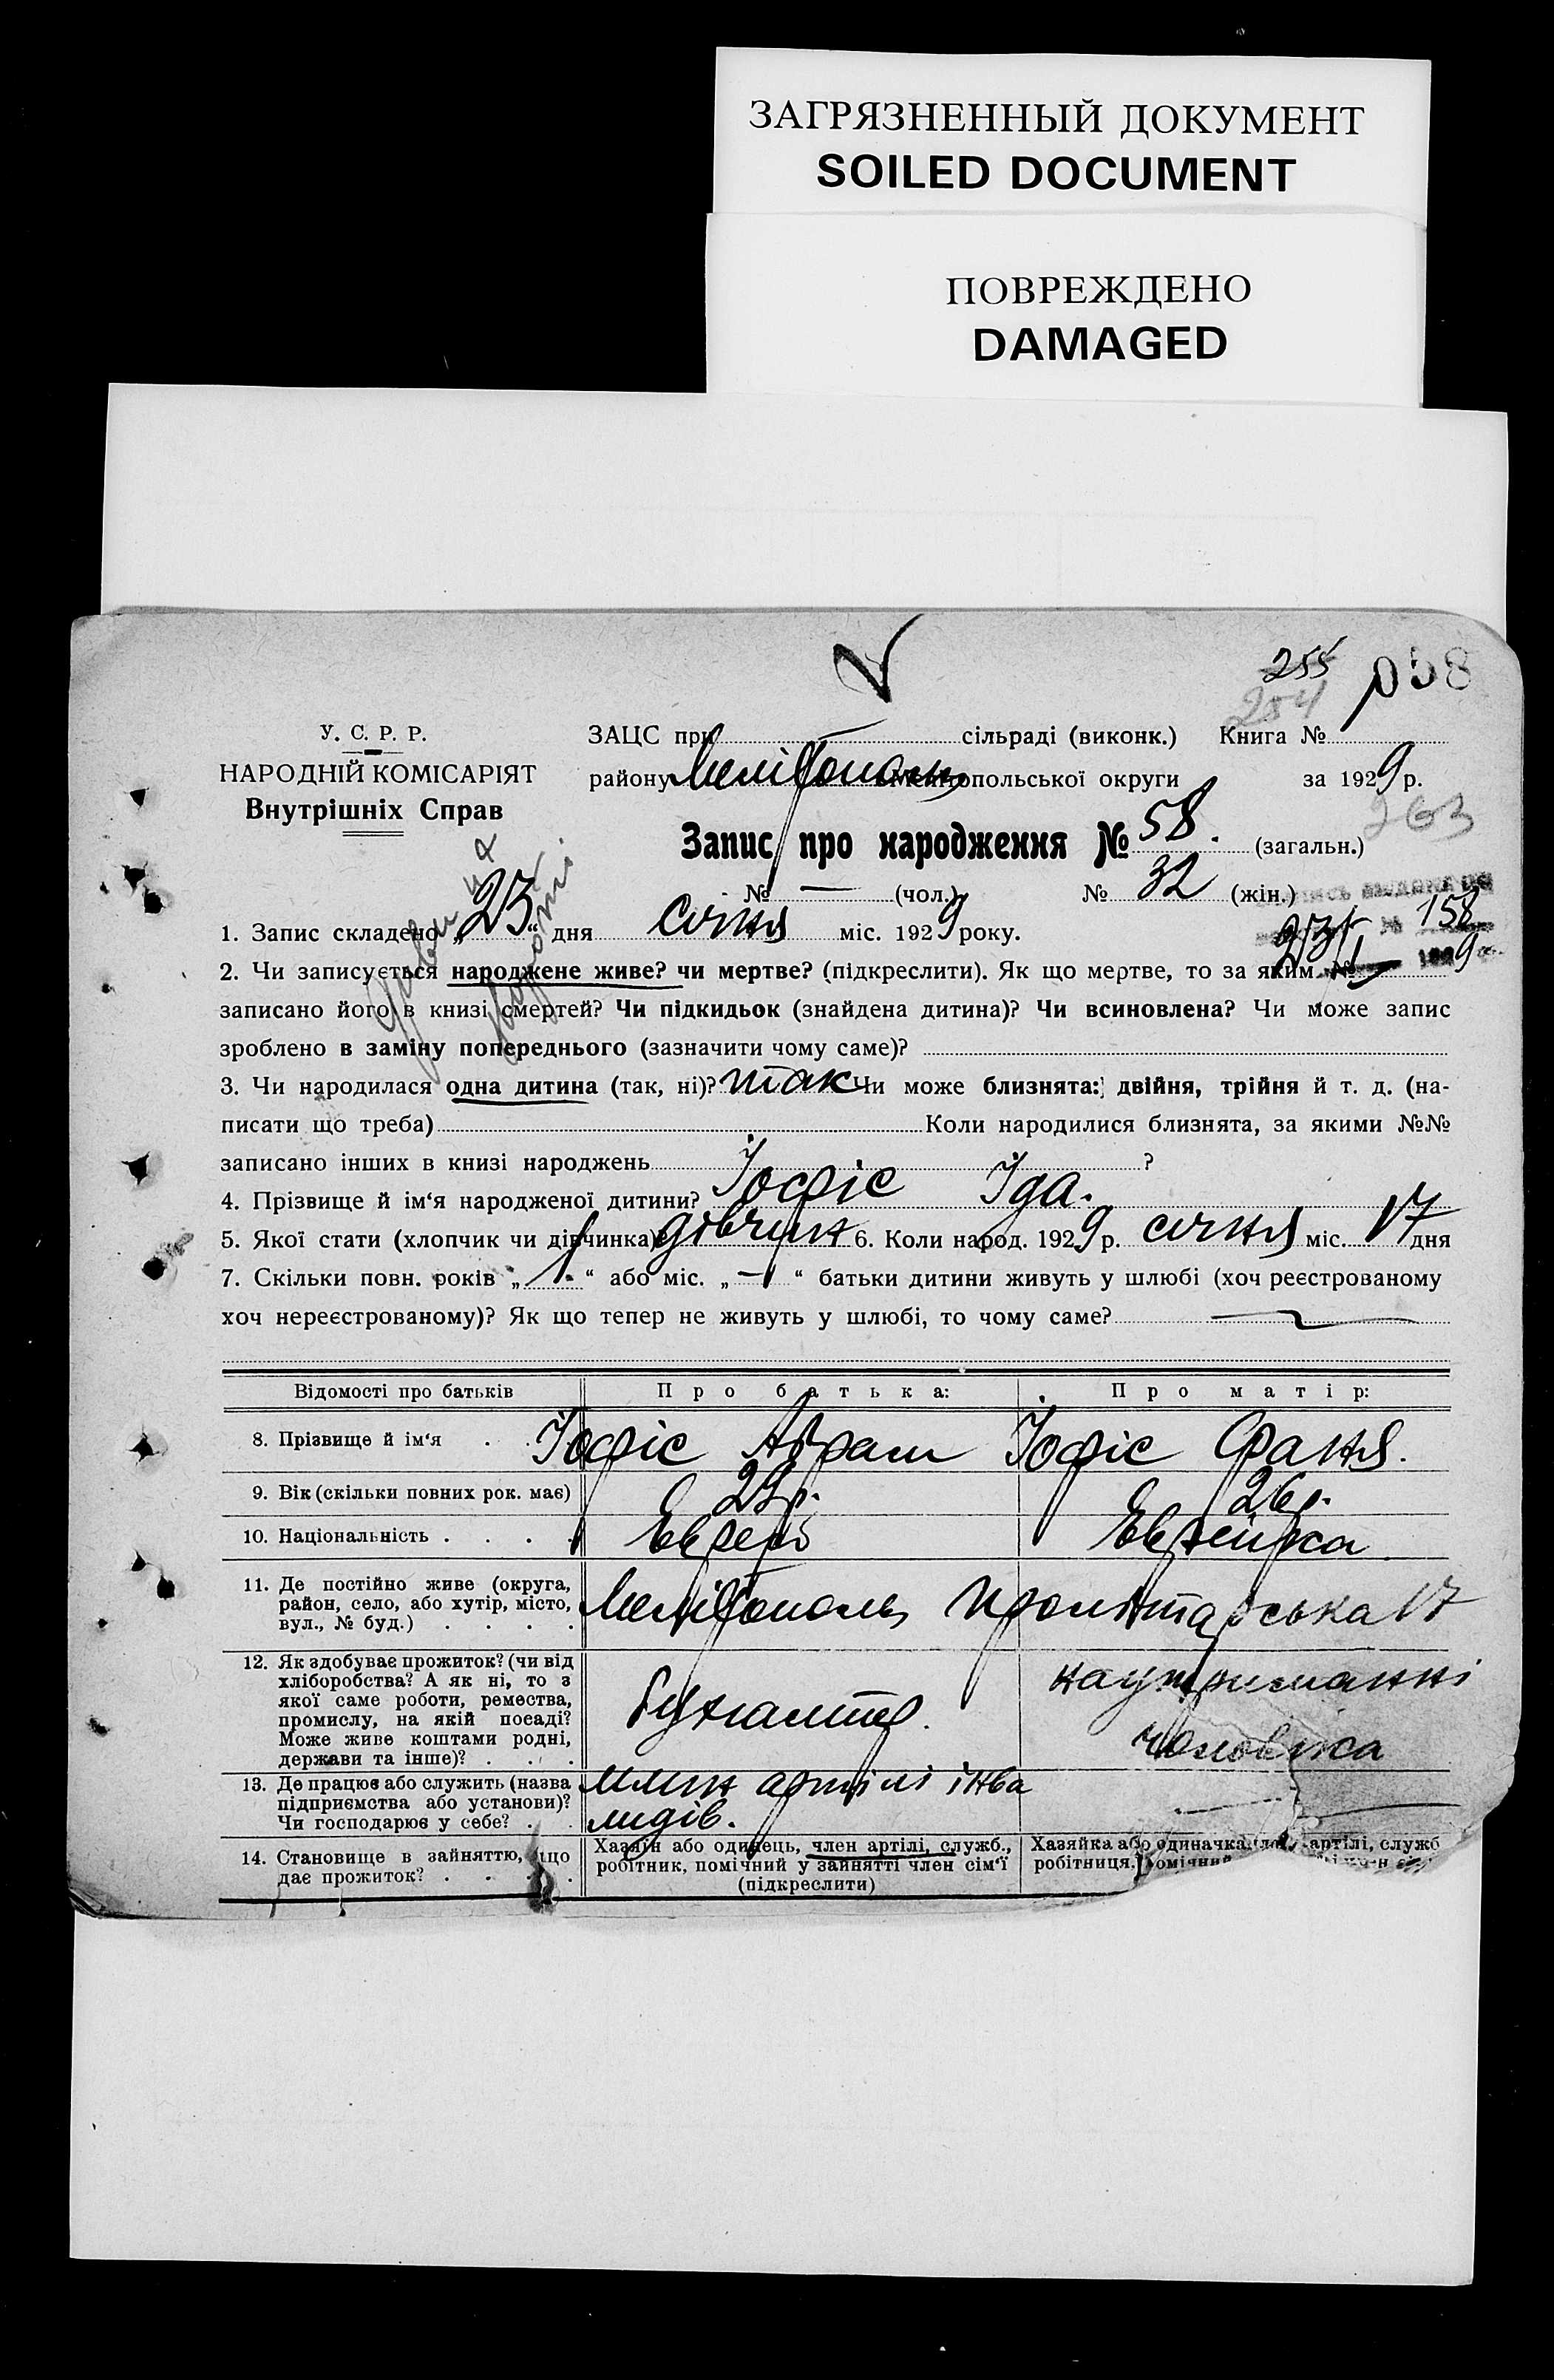 ЗАГРЯЗНЕННЫЙ ДОКУМЕНТ
SOILED DOCUMENT
ПОВРЕЖДЕНО
DAMAGED
255
058
254
У. С. Р. Р.
НАРОДНІЙ КОМІСАРІЯТ
Внутрішніх Справ
ЗАЦС при сільраді (виконк.) Книга №
району Мелітополь Мелітопольської округи за 1929 р.
263
Запис про народження № 58. (загальн.)
№ — (чол.) № 32 (жін.)
№ 158
1. Запис складено „23“ дня січня міс. 1929 року.
2. Чи записується народжене живе? чи мертве? (підкреслити). Як що мертве, то за яким №
записано його в книзі смертей? Чи підкидьок (знайдена дитина)? Чи всиновлена? Чи може запис
зроблено в заміну попереднього (зазначити чому саме)?
3. Чи народилася одна дитина (так, ні)? так Чи може близнята: двійня, трійня й т. д. (на-
писати що треба) Коли народилися близнята, за якими №№
записано інших в книзі народжень ?
4. Прізвище й ім‘я народженої дитини? Іофіс Іда.
5. Якої стати (хлопчик чи дівчинка) дівчина 6. Коли народ. 1929 р. січня міс. 17 дня
7. Скільки повн. років „1.“ або міс. „—“ батьки дитини живуть у шлюбі (хоч реєстрованому
хоч нереєстрованому)? Як що тепер не живуть у шлюбі, то чому саме? —
Відомості про батьків Про батька: Про матір:
8. Прізвище й ім‘я . . Іофіс Абрам Іофіс Фаня.
9. Вік (скільки повних рок. має) 26 р.
10. Національність . . . . Еврей Еврейка
11. Де постійно живе (округа,
район, село, або хутір, місто,
вул., № буд.) . . . .
Мелітополь Пролятарська 17
12. Як здобуває прожиток? (чи від
хліборобства? А як ні, то з
якої саме роботи, ремества,
промислу, на якій посаді?
Може живе коштами родні,
держави та інше)? . . .
Бухгалтер.
на утриманні
чоловіка
13. Де працює або служить (назва
підприємства або установи)?
Чи господарює у себе? . .
млин артілі інва
лидів.
14. Становище в зайняттю, що
дає прожиток? . . . .
Хазяїн або одинець, член артілі, служб.,
робітник, помічний у зайнятті член сім‘ї
(підкреслити)
Хазяйка або одиначка, артілі, служб
робітниця,